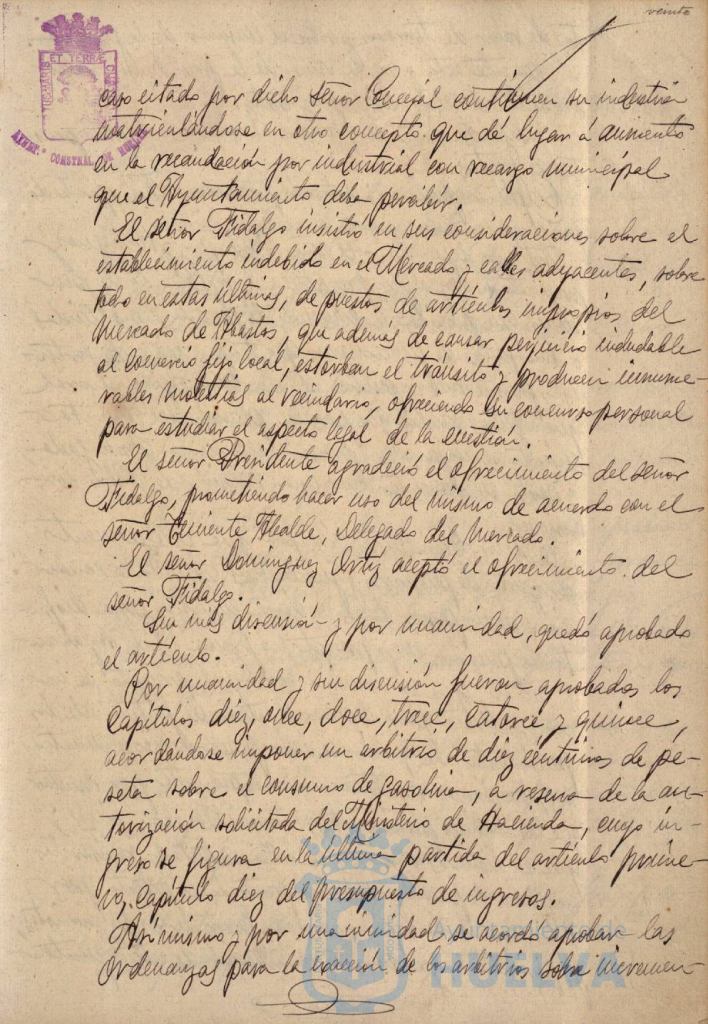 veinte
PORTUS MARIS ET TERRÆ CUSTODIA
AYUNT.º CONSTNAL. DE HUELVA
caso citado por dicho señor Concejal continuen su industria
matriculándose en otro concepto que dé lugar á aumento
en la recaudación por industrial con recargo municipal
que el Ayuntamiento deba percibir.
El señor Fidalgo insistió en sus consideraciones sobre el
establecimiento indebido en el Mercado y calles adyacentes, sobre
todo en estas últimas, de puestos de artículos impropios del
Mercado de Abastos, que además de causar perjuicio indudable
al comercio fijo local, estorban el tránsito y producen innume-
rables molestias al vecindario, ofreciendo su concurso personal
para estudiar el aspecto legal de la cuestión.
El señor Presidente agradeció el ofrecimiento del señor
Fidalgo, prometiendo hacer uso del mismo de acuerdo con el
señor Teniente Alcalde, Delegado del Mercado.
El señor Domínguez Ortiz aceptó el ofrecimiento del
señor Fidalgo.
Sin más discusión y por unanimidad, quedó aprobado
el artículo.
Por unanimidad y sin discusión fueron aprobados los
Capítulos diez, once, doce, trece, catorce y quince,
acordándose imponer un arbitrio de diez céntimos de pe-
seta sobre el consumo de gasolina, a reserva de la au-
torización solicitada del Ministerio de Hacienda, cuyo in-
greso se figura en la última partida del artículo prime-
ro, Capítulo diez del presupuesto de ingresos.
Asímismo y por unanimidad se acordó aprobar las
Ordenanzas para la exacción de los arbitrios sobre incremen-
HUELVA